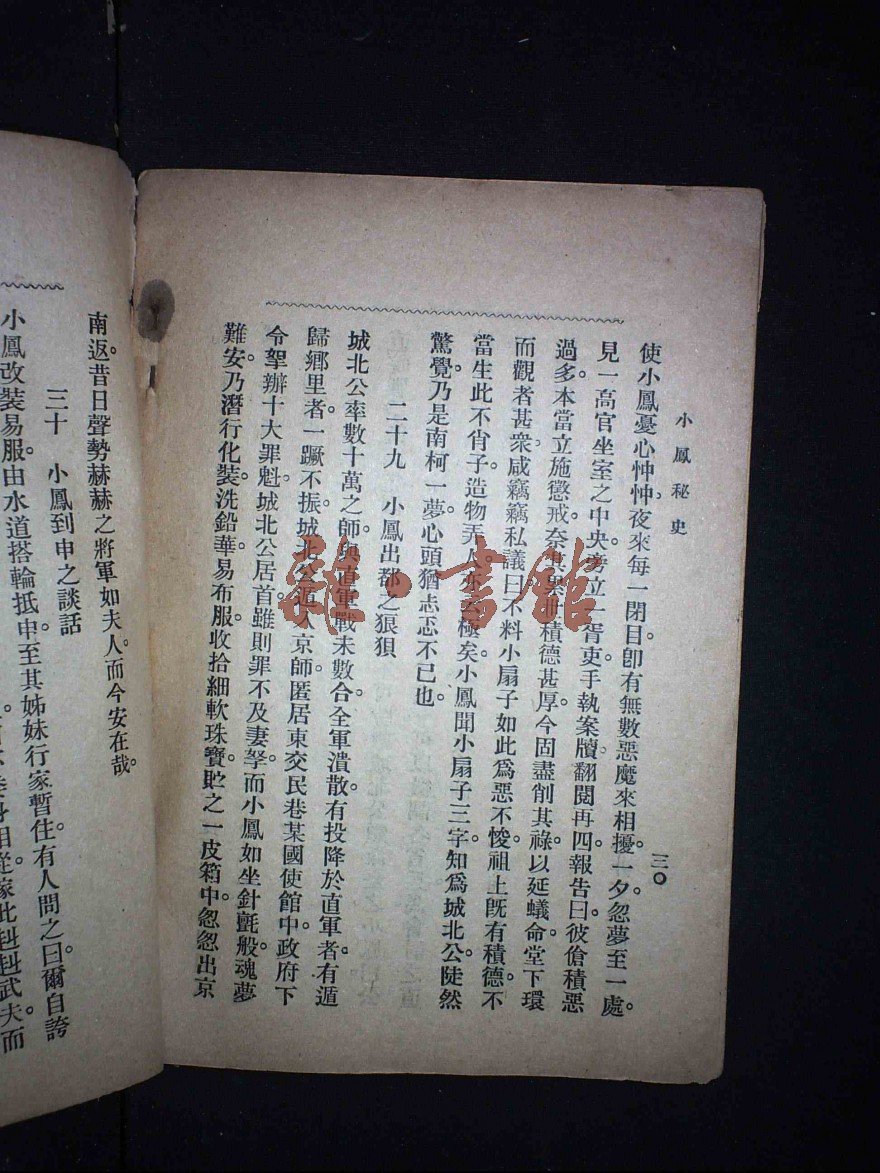 小鳳秘史
三〇
使小鳳憂心忡忡。夜來每一閉目。卽有無數惡魔來相擾。一夕忽夢至一處。
見一高官坐室之中央。旁立一胥吏。手執案牘。翻閱再四。報告曰。彼傖積惡
過多。本當立施懲戒。奈其累世積德甚厚。今固盡削其祿。以延蟻命。堂下環
而觀者甚衆。咸竊竊私議曰。不料小扇子如此爲惡不悛。祖上旣有積德。不
當生此不肖子。造物弄人。亦云極矣。小鳳聞小扇子三字。知爲城北公。陡然
驚覺。乃是南柯一夢。心頭猶忐忑不已也。
二十九　小鳳出都之狼狽
城北公率數十萬之師。與直軍戰未數合。全軍潰散。有投降於直軍者。有遁
歸鄉里者。一蹶不振。城北公遁入京師。匿居東交民巷某國使館中。政府下
令拏辦十大罪魁。城北公居首。雖則罪不及妻孥。而小鳳如坐針氈。般魂夢
難安。乃潛行化裝。洗鉛華。易布服。收拾細軟珠寶。貯之一皮箱中。怱怱出京
南返。昔日聲勢赫赫之將軍如夫人。而今安在哉。
三十　小鳳到申之談話
小鳳改裝易服。由水道搭輪抵申。至其姊妹行家暫住。有人問之曰。爾自誇
相從。嫁此赳赳武夫。而
雜·書館